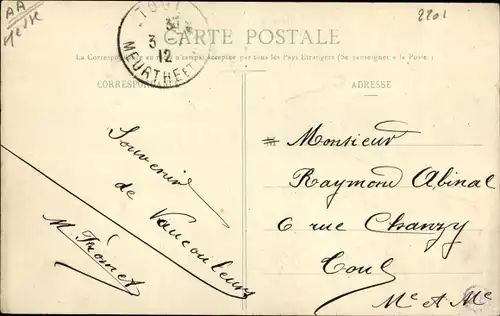 AA
8801
TOUL
3
12
MEURTHE ET
CARTE POSTALE
La Correspondance au recto n'est pas acceptée par tous les Pays Etrangers (Se renseigner à la Poste).
CORRESPONDANCE
ADRESSE
Souvenir
de
Vaucouleurs
Monsieur
Raymond Abinal
6 rue Chanzy
Toul
Mthe et Mlle